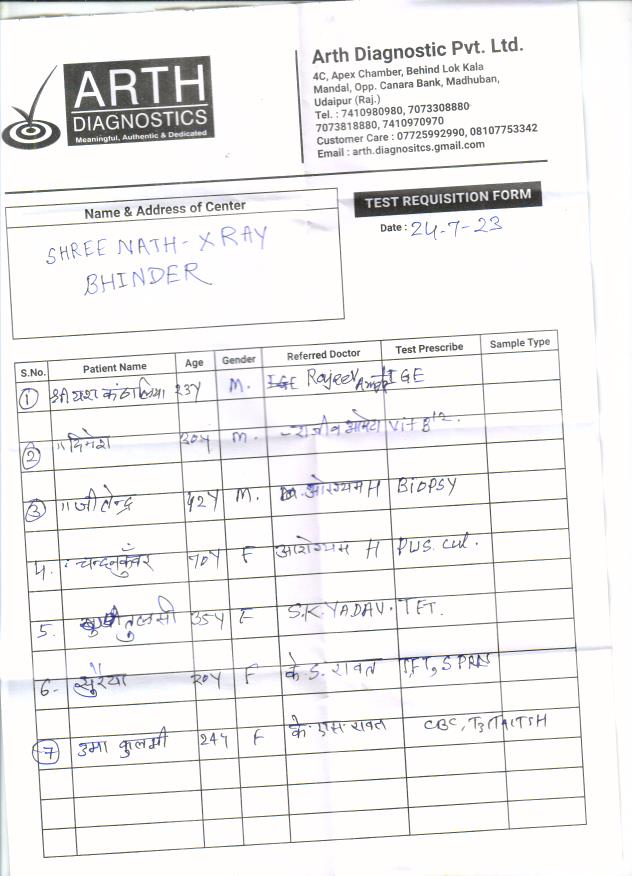 ARTH
DIAGNOSTICS
Meaningful, Authentic & Dedicated
Arth Diagnostic Pvt. Ltd.
4C, Apex Chamber, Behind Lok Kala
Mandal, Opp. Canara Bank, Madhuban,
Udaipur (Raj.)
Tel. : 7410980980, 7073308880
7073818880, 7410970970
Customer Care : 07725992990, 08107753342
Email : arth.diagnositcs.gmail.com
Name & Address of Center
SHREE NATH-XRAY
BHINDER
TEST REQUISITION FORM
Date : 24-7-23
S.No. Patient Name Age Gender Referred Doctor Test Prescribe Sample Type
1 श्री यश कंठालिया 23Y M. Rajeev IGE
2 " दिनेश 30Y M. राजीव आमेटा Vit B12.
3 " जीतेन्द्र 42Y M. आरोग्यम H BIOPSY
4. चन्दनकुँवर 70Y F आरोग्यम H PUS. Cul.
5. तुलसी 35Y F S.K.YADAV. TFT.
6- सुरैया 20Y F के. S. रावत TFT,
7 उमा कुलमी 24Y F के. एस. रावत CBC, T3T4TSH